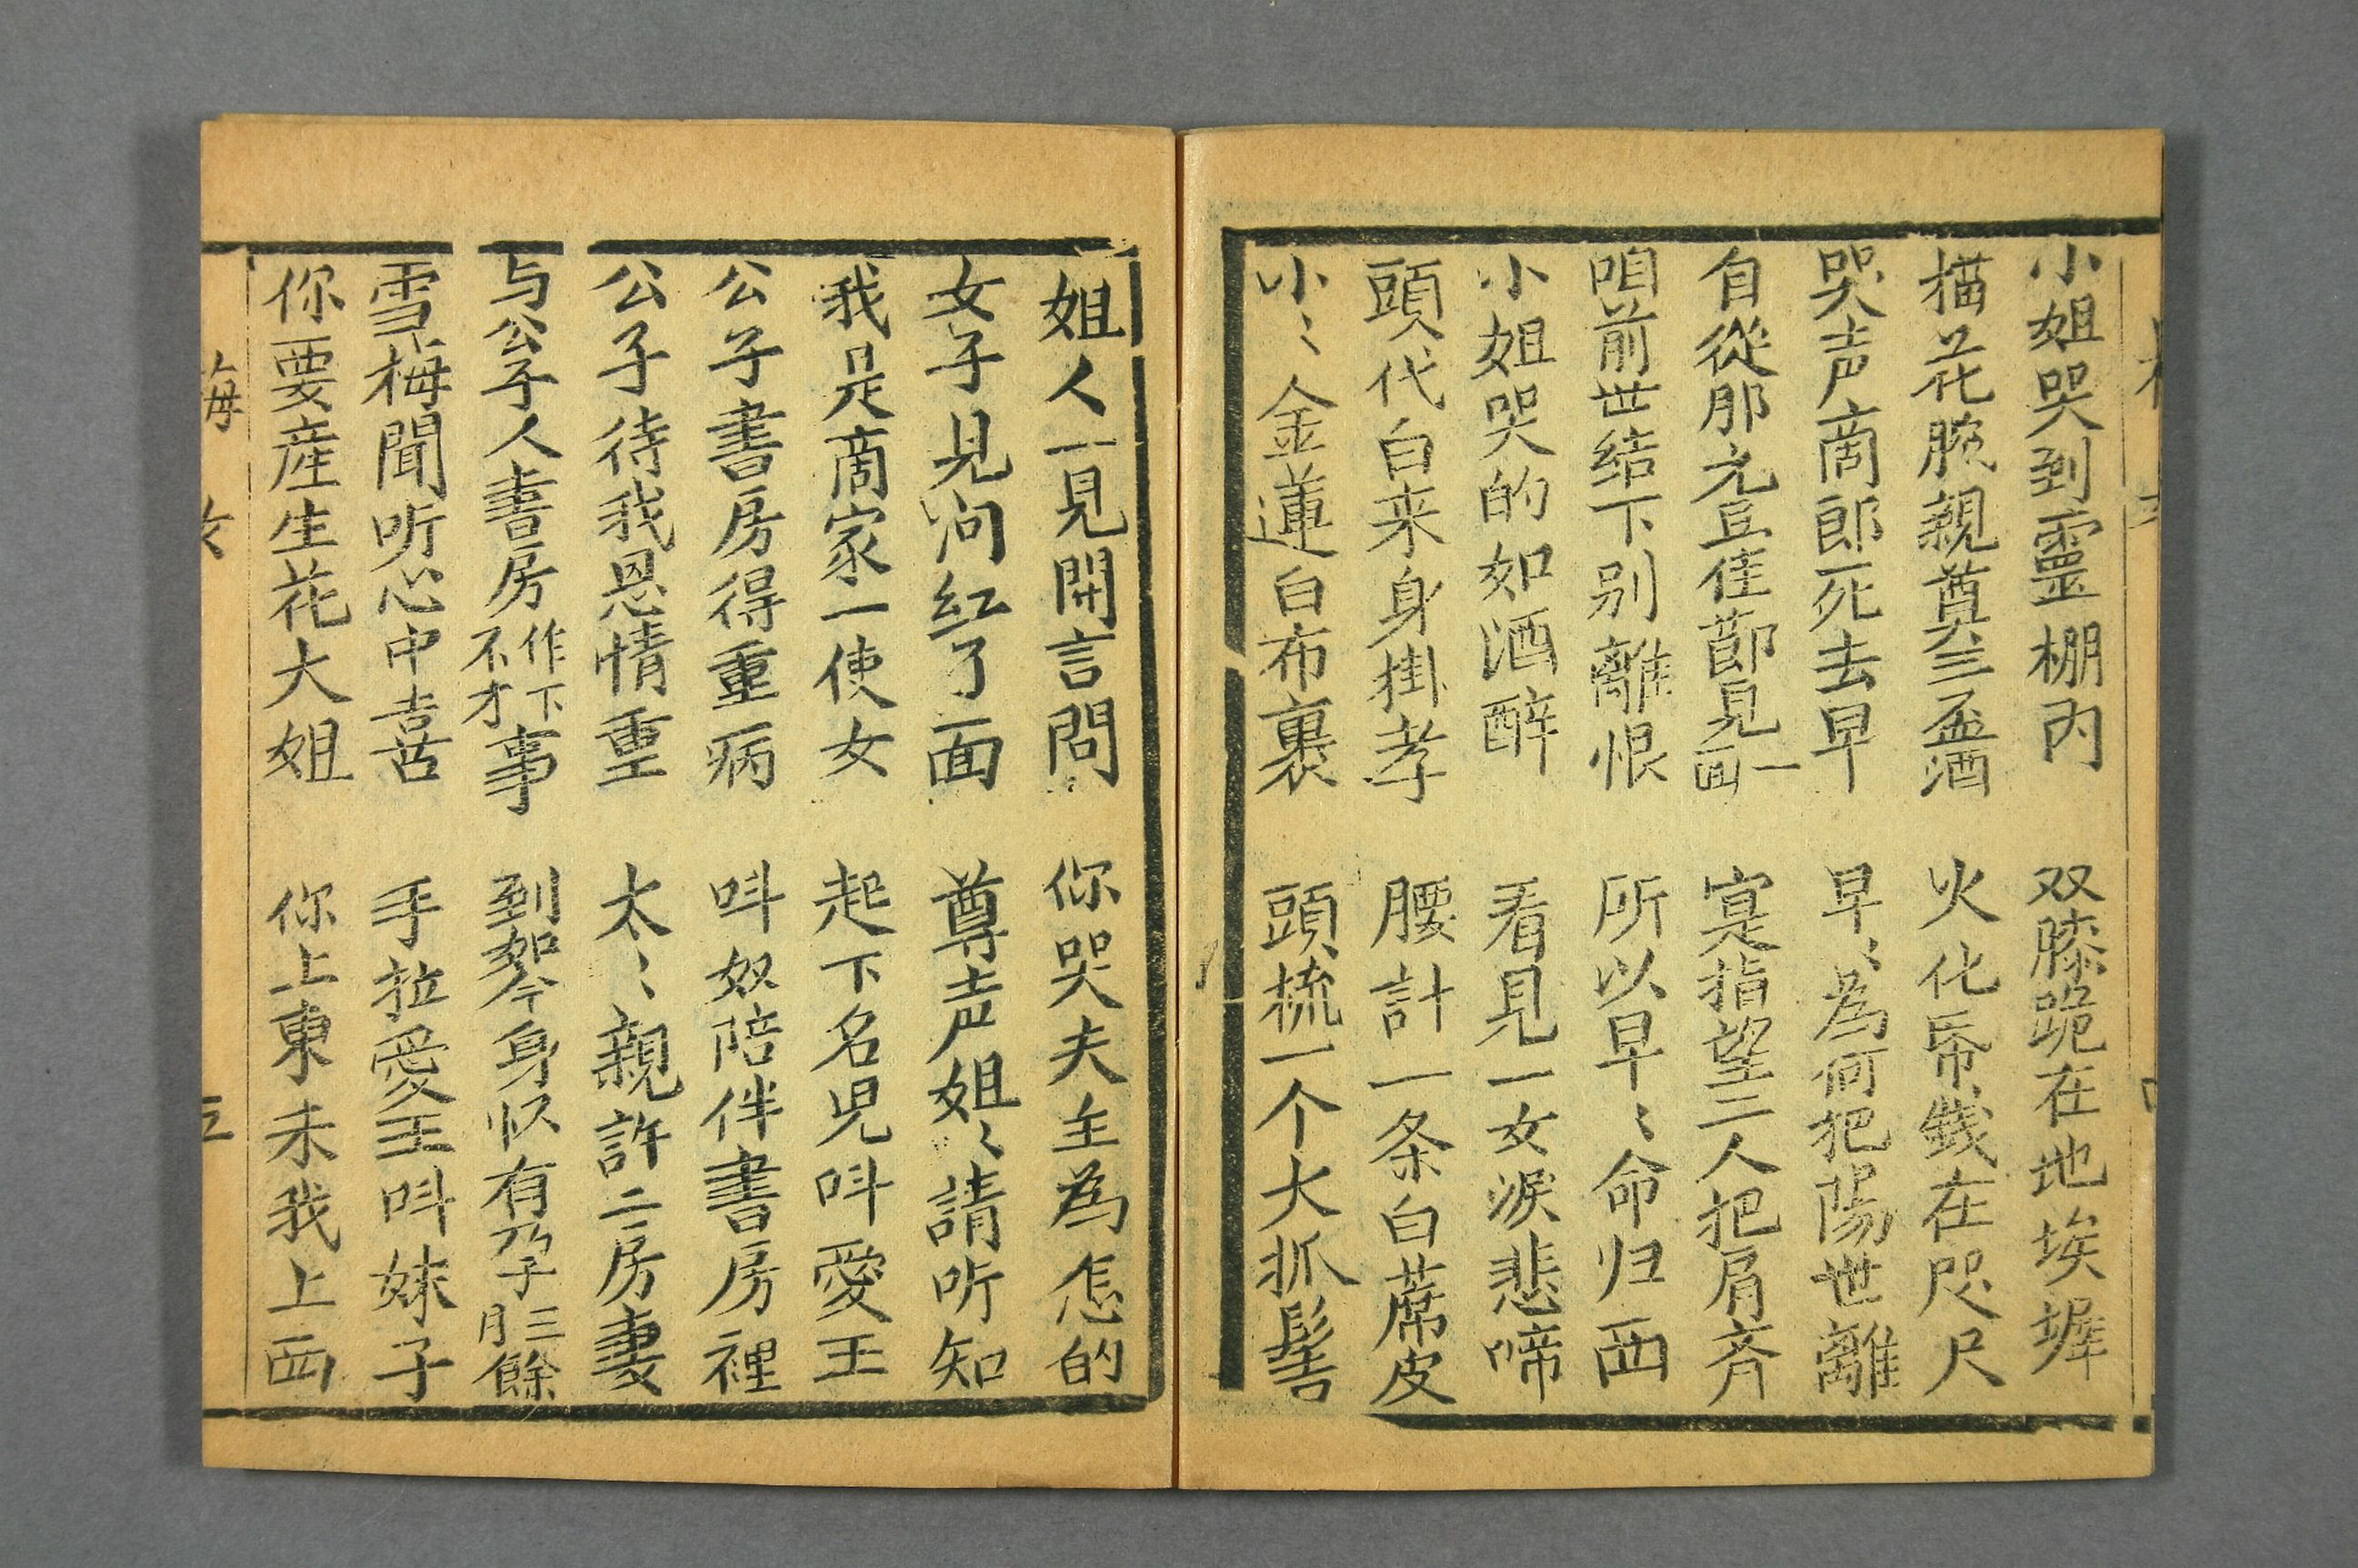 小姐哭到靈棚內　双膝跪在地埃墀
描花腕親奠三盃酒　火化帋錢在咫尺
哭声商郎死去早　早〻為何把陽世離
自從那元宵佳節見一面　寔指望二人把肩齐
咱前世结下别離恨　所以早〻命归西
小姐哭的如酒醉　看見一女淚悲啼
頭代白来身掛孝　腰計一条白蓆皮
小〻金蓮白布裹　頭梳一个大抓髻
姐人一見開言問　你哭夫主為怎的
女子見问红了面　尊声姐〻請听知
我是商家一使女　起下名児呌愛玉
公子書房得重病　呌奴陪伴書房裡
公子待我恩情重　太〻親許二房妻
与公子人書房作下不才事　到如今身怀有孕子三月餘
雪梅聞听心中喜　手拉愛玉呌妹子
你要産生花大姐　你上東来我上西
梅